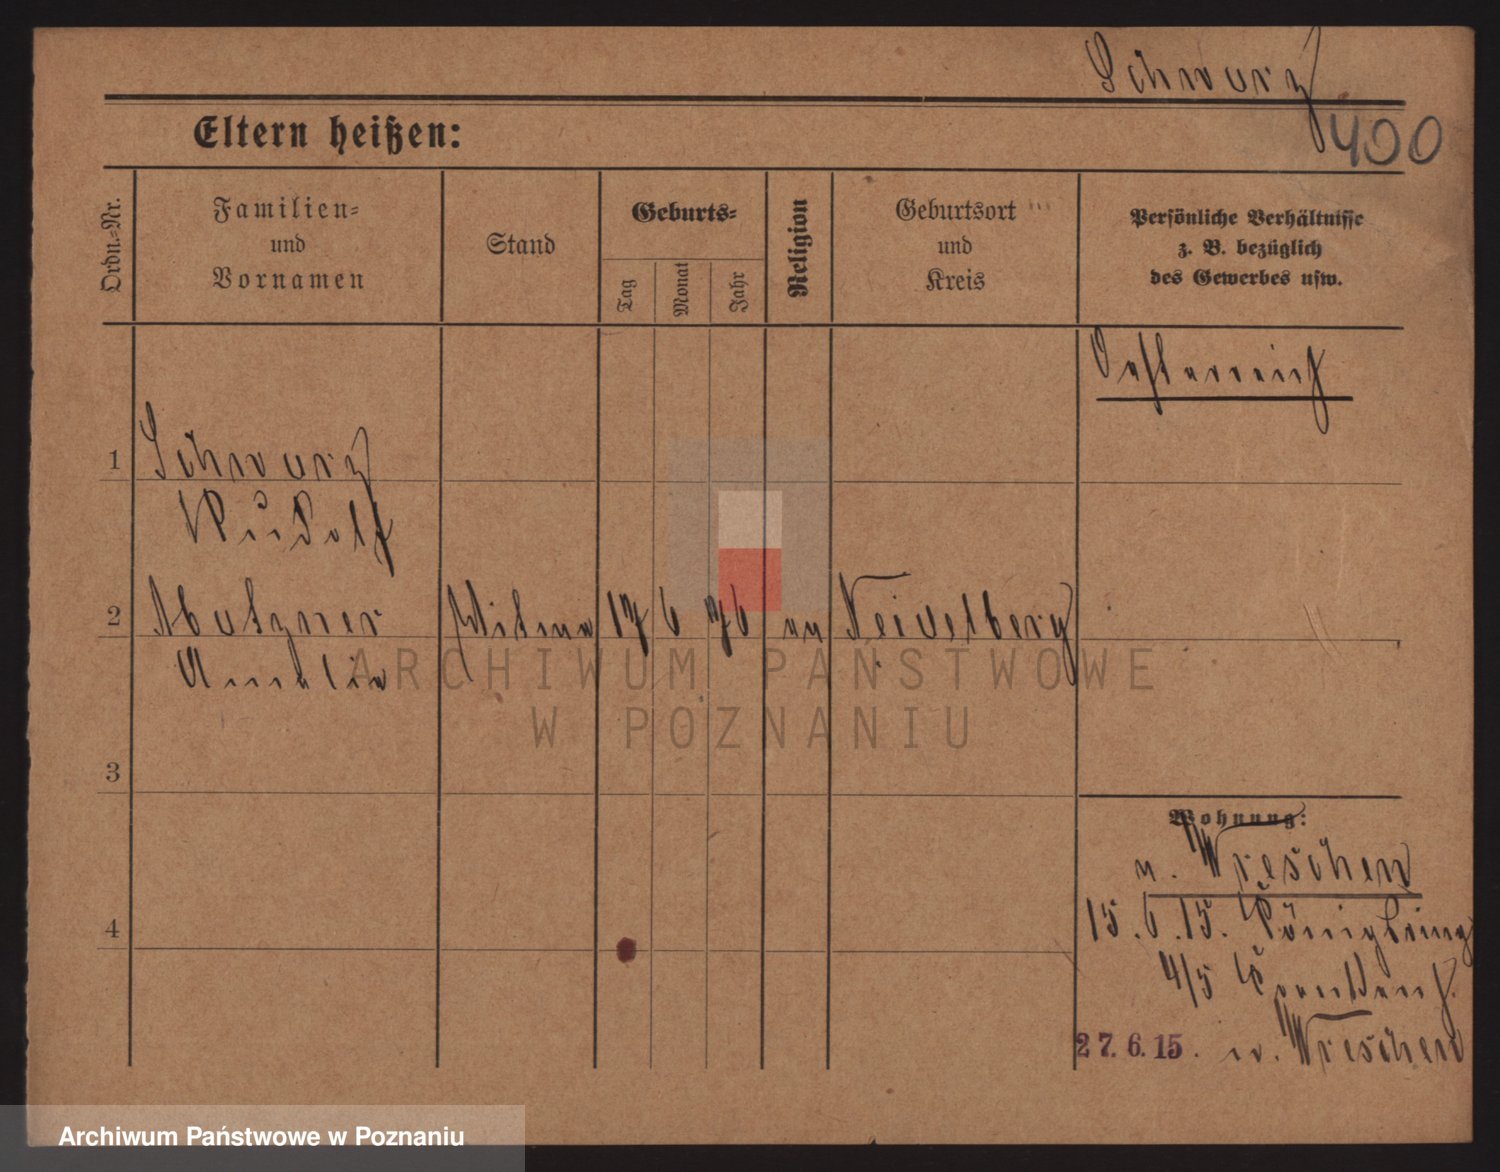 Schwarz
400
Eltern heißen:
Ordn.=Nr.
Familien=
und
Vornamen
Stand
Geburts=
Tag
Monat
Jahr
Religion
Geburtsort
und
Kreis
Persönliche Verhältnisse
z. B. bezüglich
des Gewerbes usw.
Oesterreich
1
Schwarz
Rudolf
2
Amalie
Witwe
17
6
76
ev
Heidelberg
3
4
Wohnung:
n. Wreschen
15.6.15. Königsring
4/5
27.6.15. n. Wreschen
ARCHIWUM PAŃSTWOWE
W POZNANIU
Archiwum Państwowe w Poznaniu